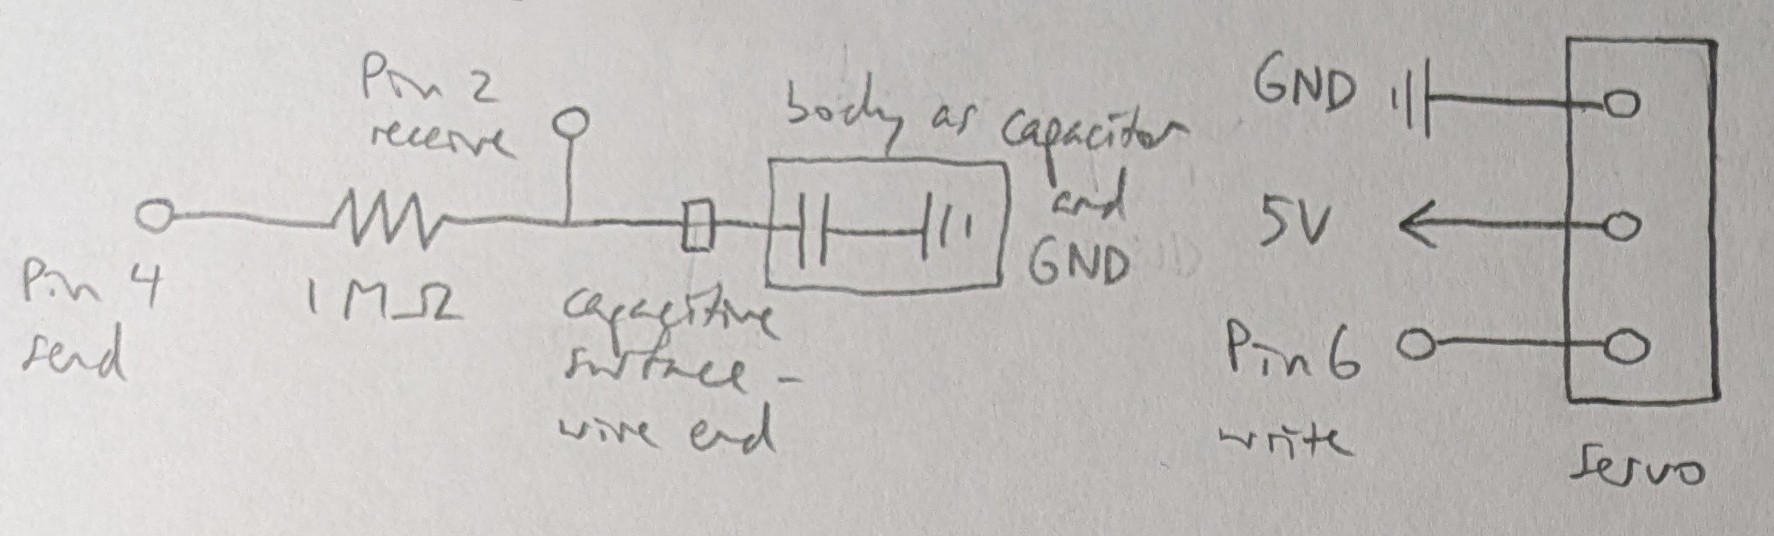 Pin 2
receive
Pin 4
send
1 MΩ
capacitive
surface -
wire end
body as capacitor
and
GND
GND
5V
Pin 6
write
servo